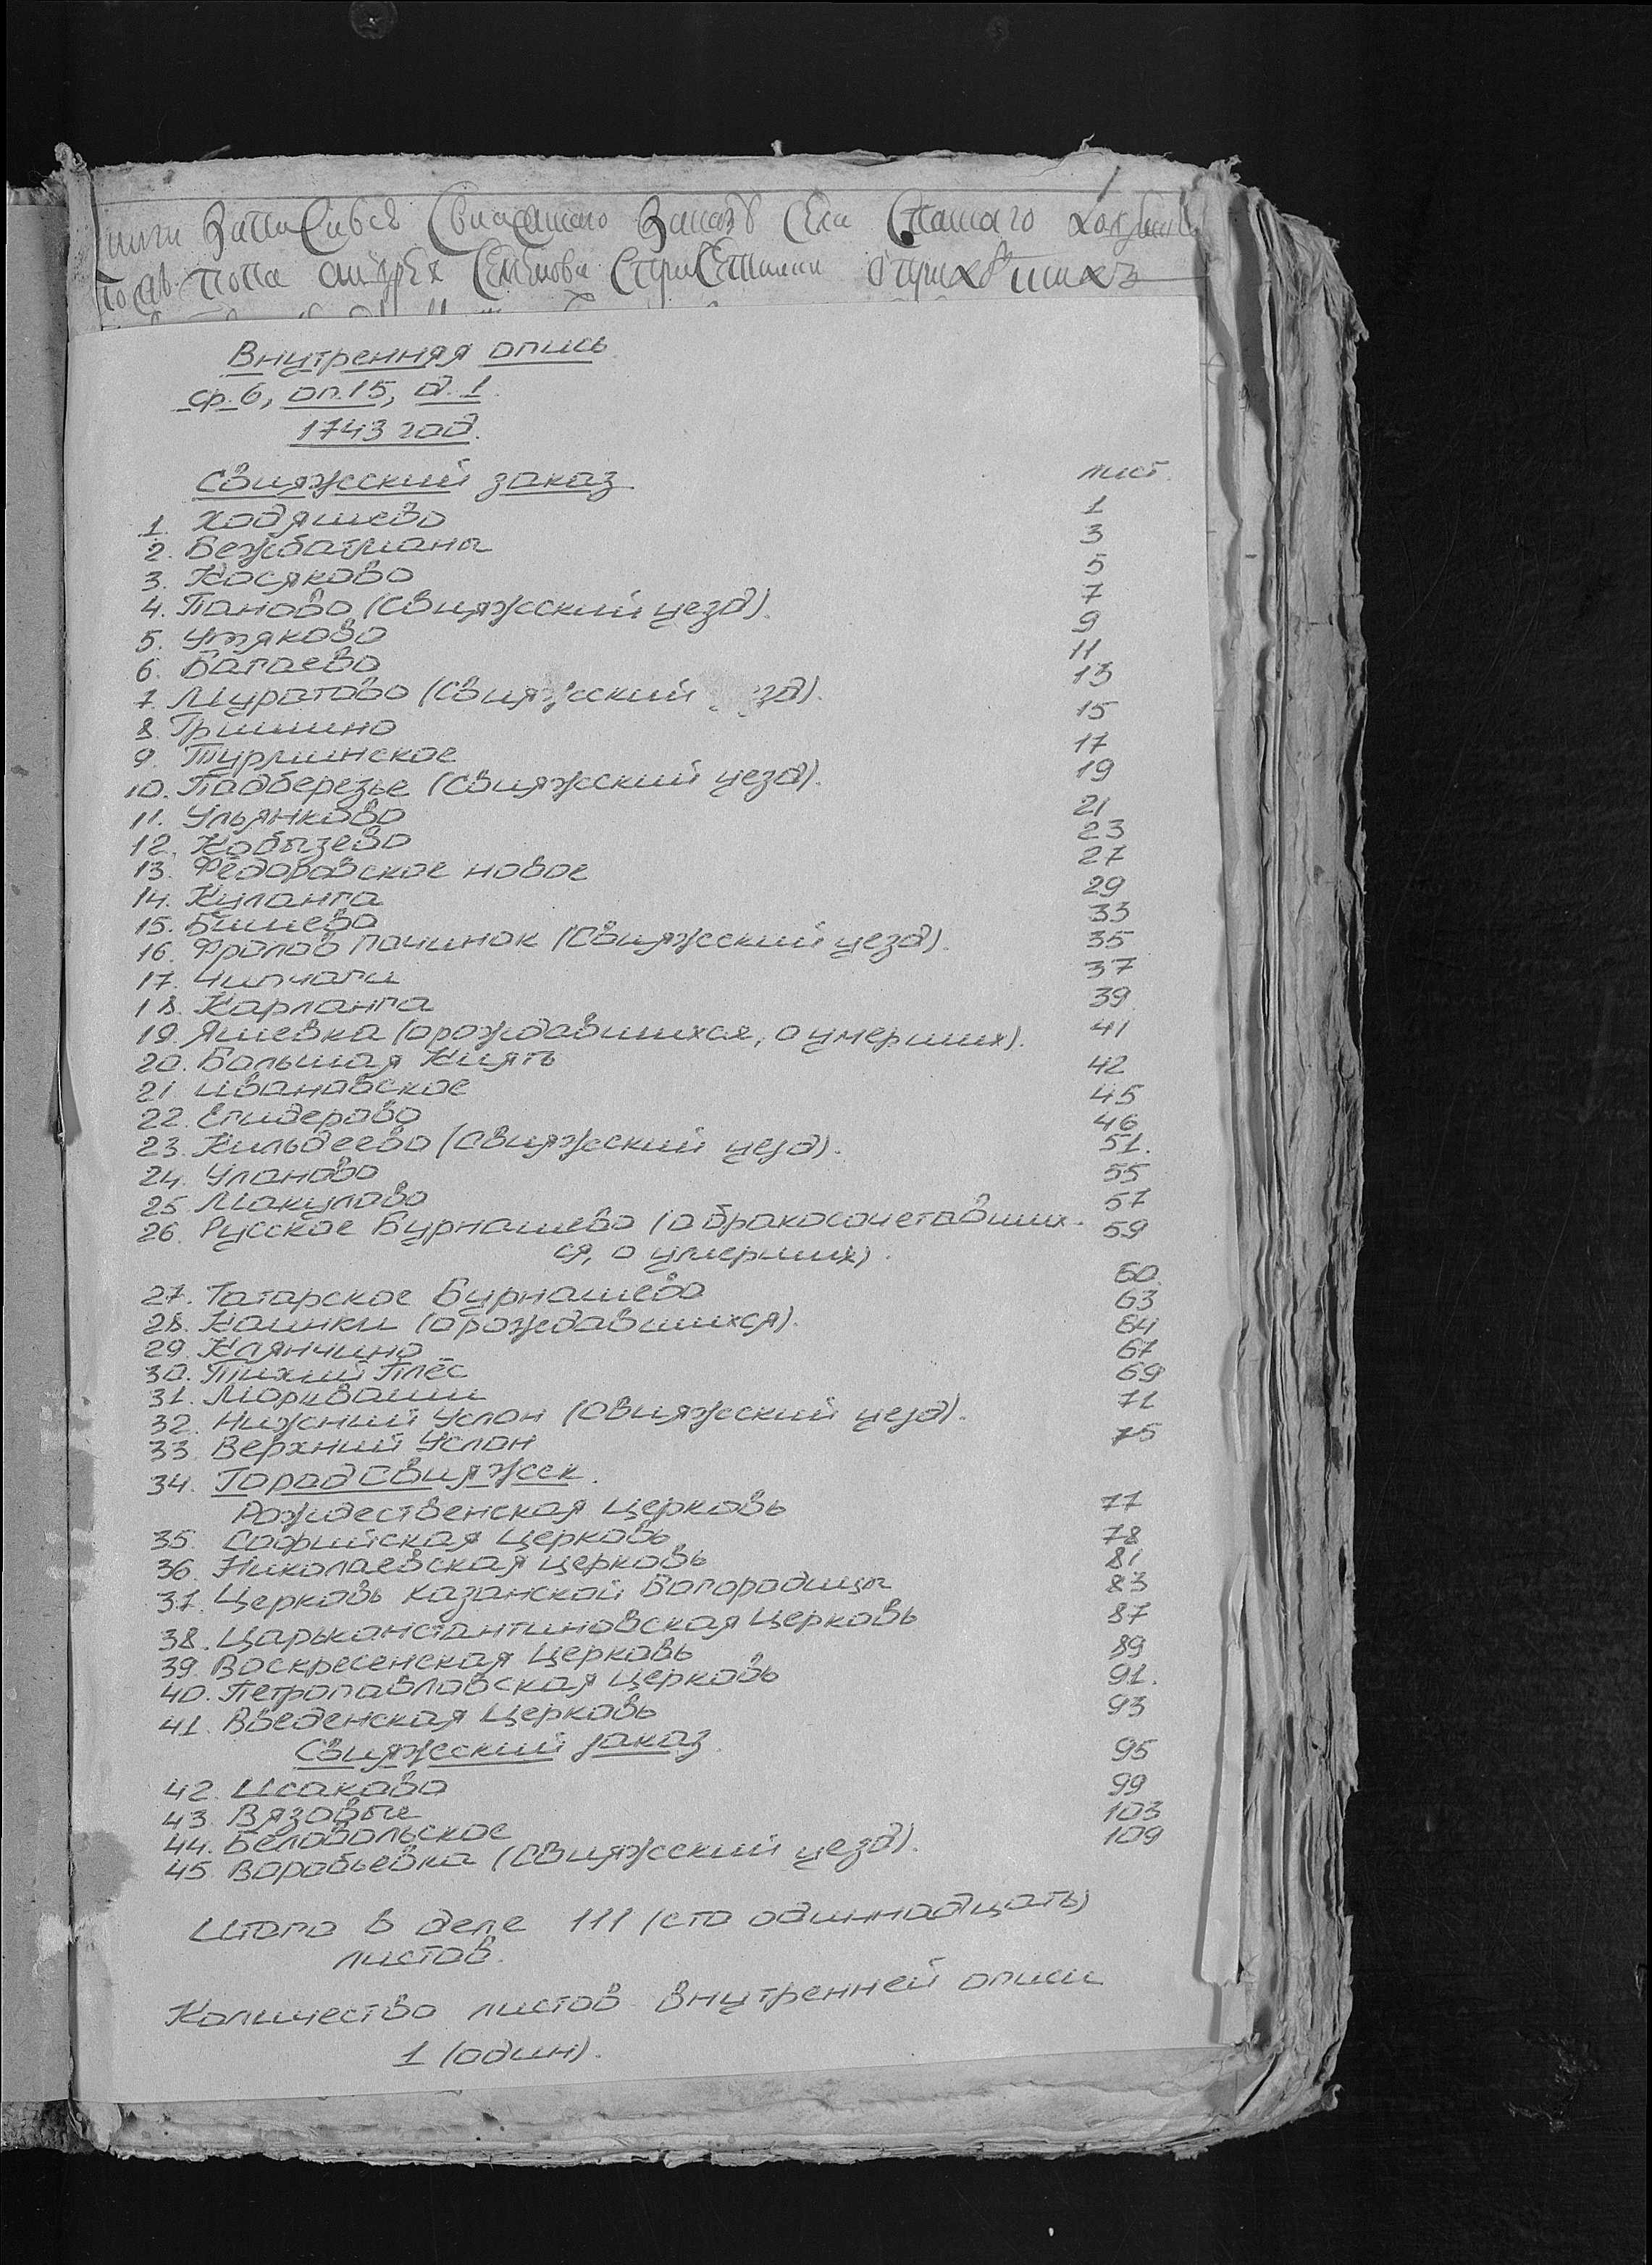 Внутренняя опись
ф.6, оп.15, д.1.
1743 год.
Свияжский заказ лист.
1. Ходяшево 1
2. Бежбатманы 3
3. Косяково 5
4. Паново (Свияжский уезд). 7
5. Утяково 9
6. Багаево 11
7. Муратово (Свияжский зд). 13
8. Гришино 15
9. Турминское 17
10. Подберезье (Свияжский уезд). 19
11. Ульянково 21
12. Кобызево 23
13. Фёдоровское новое 27
14. Куланга 29
15. Бишево 33
16. Фролов починок (Свияжский уезд). 35
17. Чипчаги 37
18. Карланга 39
19. Яшевка (о рождавшихся, о умерших). 41
20. Большая Киять 42
21 Ивановское 45
22. Егидерово 46
23. Кильдеево (Свияжский уезд). 51.
24. Уланово 55
25 Макулово 57
26. Русское Бурнашево (о бракосочетавших- 59
ся, о умерших).
27. Татарское Бурнашево 60
28. Каинки (о рождавшихся). 63
29. Клянчино 64
30. Тихий Плёс 67
31. Моркваши 69
32. Нижний Услон (Свияжский уезд). 71
33. Верхний Услон 75
34. Город Свияжск.
Рождественская церковь 77
35. Софийская церковь 78
36. Николаевская церковь 81
37. Церковь Казанской Богородицы 83
38. Царьконстантиновская церковь 87
39. Воскресенская церковь 89
40. Петропавловская церковь 91.
41. Введенская церковь 93
Свияжский заказ
42. Исаково 95
43. Вязовые 99
44. Беловольское 103
45. Воробьевка (Свияжский уезд). 109
Итого в деле 111 (сто одиннадцать)
листов.
Количество листов внутренней описи
1 (один).